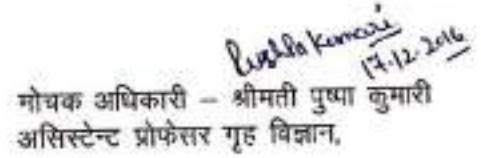 Pushpa Kumari
17.12.2016
गोचक अधिकारी – श्रीमती पुष्पा कुमारी
असिस्टेन्ट प्रोफेसर गृह विज्ञान,